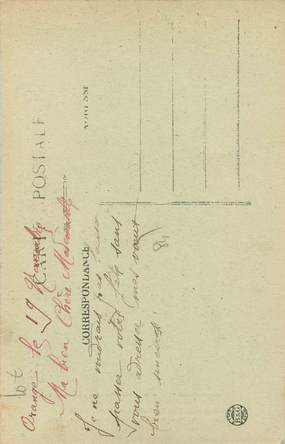 CARTE POSTALE
CORRESPONDANCE
ADRESSE
Orange le 19
Ma bien Chère
Je ne voudrais pas
passer votre fête sans
vous adresser mes vœux
bien sincères